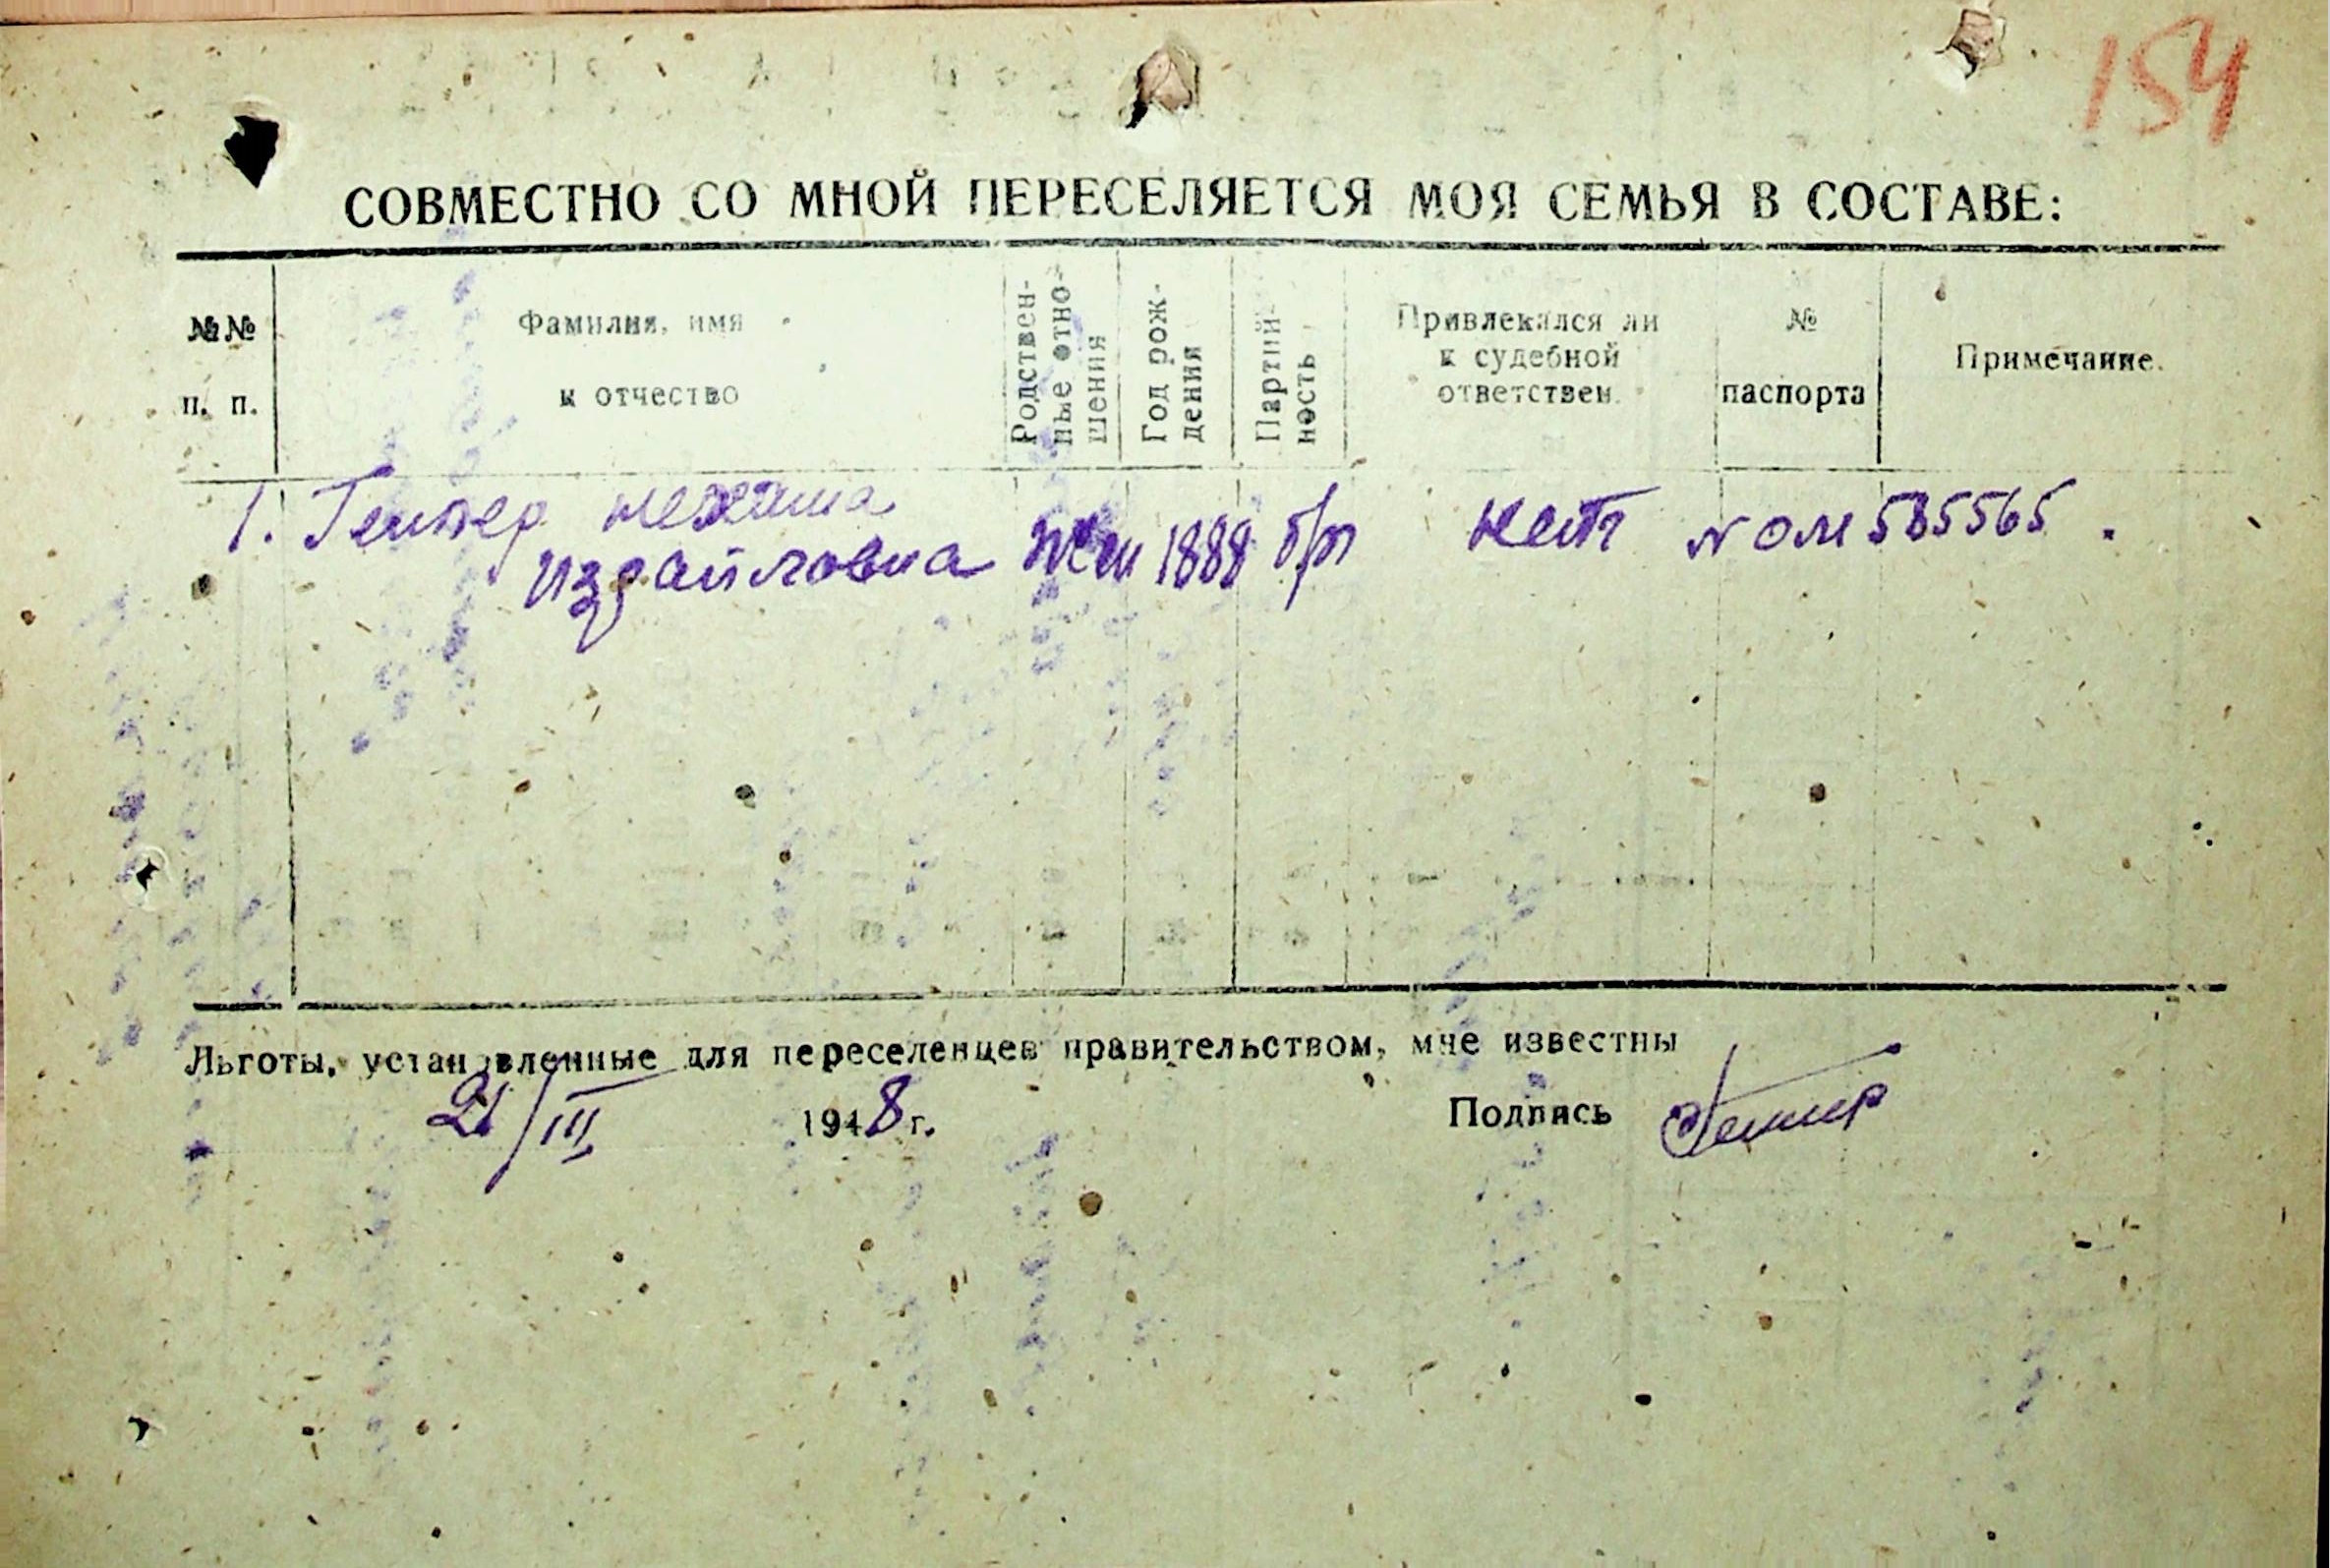 154
СОВМЕСТНО СО МНОЙ ПЕРЕСЕЛЯЕТСЯ МОЯ СЕМЬЯ В СОСТАВЕ:
№№ п. п.
Фамилия, имя и отчество
Родственные отношения
Год рождения
Партийность
Привлекался ли к судебной ответствен.
№ паспорта
Примечание.
1. Гентер Нехама
Издайловна жен 1888 б/п нет № ОМ 585565.
Льготы, установленные для переселенцев правительством, мне известны
21/III 1948 г. Подпись